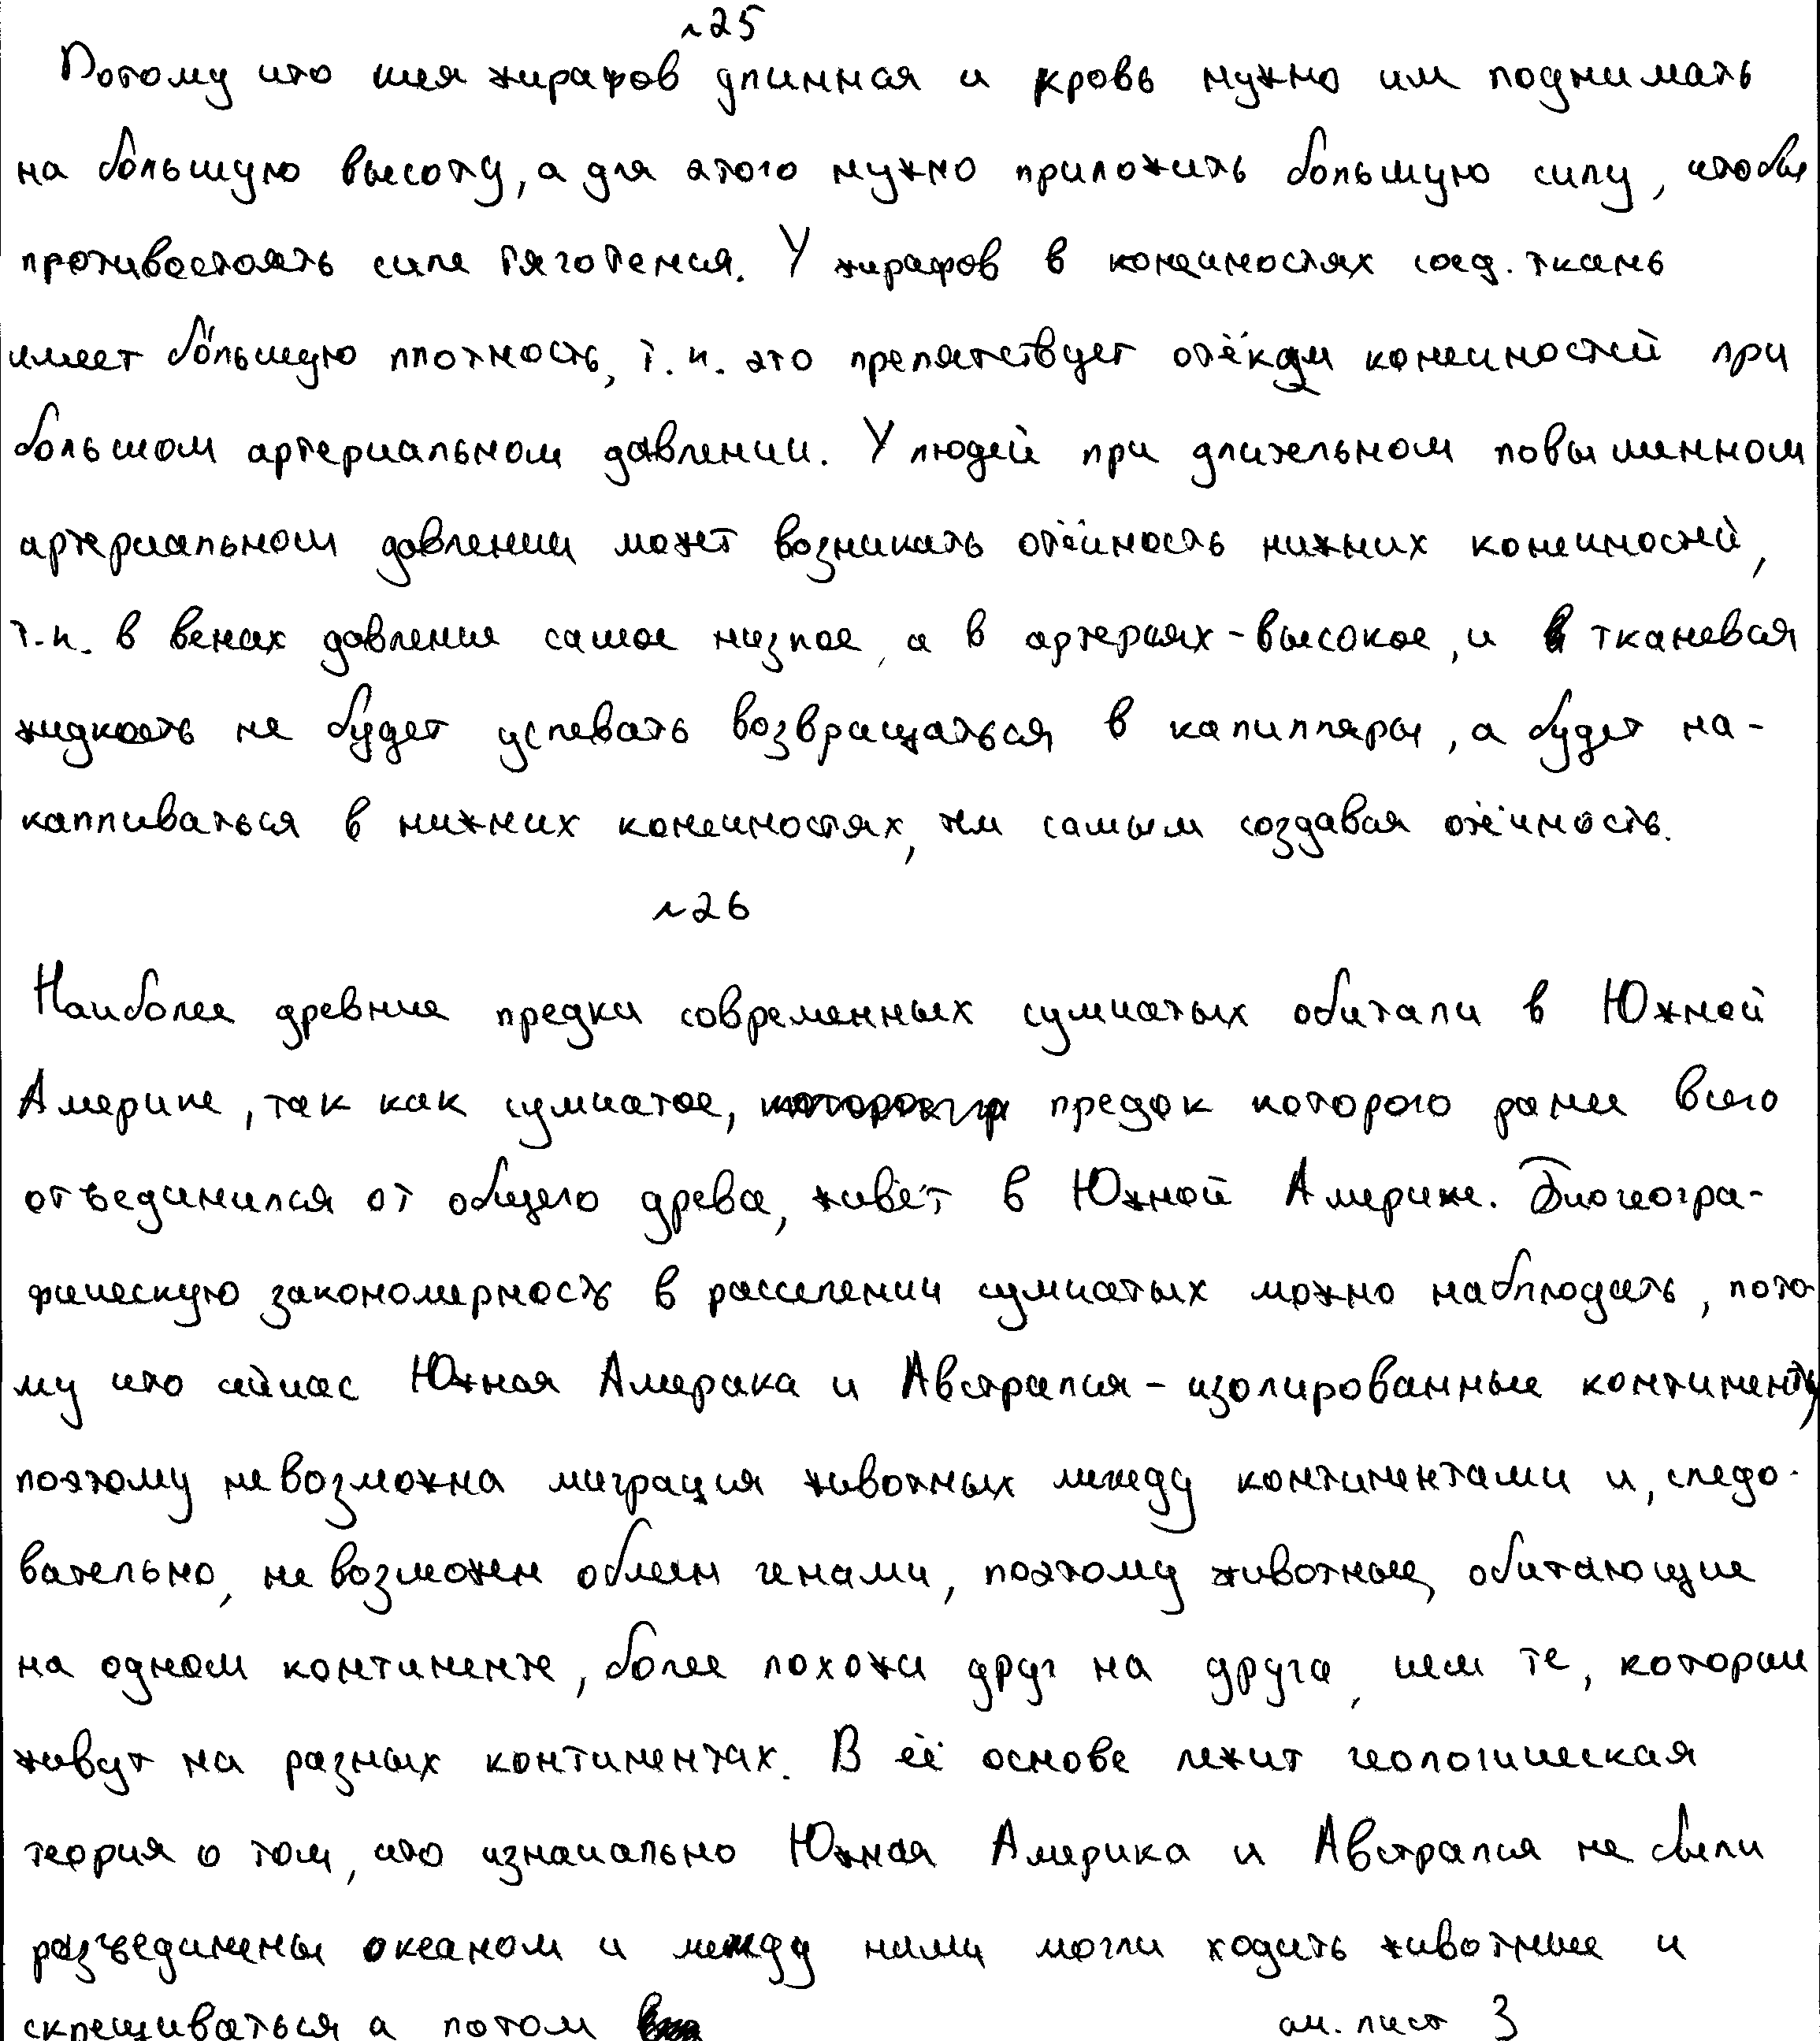 №25
Потому что шея жирафов длинная и кровь нужно им поднимать
на бо́льшую высоту, а для этого нужно приложить большую силу, чтобы
противостоять силе тяготения. У жирафов в конечностях соед. ткань
имеет бо́льшую плотность, т.к. это препятствует отёкам конечностей при
большом артериальном давлении. У людей при длительном повышенном
артериальном давлении может возникать отёчность нижних конечностей,
т.к. в венах давление самое низкое, а в артериях - высокое, и тканевая
жидкость не будет успевать возвращаться в капилляры, а будет на-
капливаться в нижних конечностях, тем самым создавая отёчность.
№26
Наиболее древние предки современных сумчатых обитали в Южной
Америке, так как сумчатое, предок которого ранее всего
отъединился от общего древа, живёт в Южной Америке. Биогеогра-
фическую закономерность в расселении сумчатых можно наблюдать, пото
му что сейчас Южная Америка и Австралия - изолированные континенты,
поэтому невозможна миграция животных между континентами и, следо-
вательно, не возможен обмен генами, поэтому животные, обитающие
на одном континенте, более похожи друг на друга, чем те, которые
живут на разных континентах. В её основе лежит геологическая
теория о том, что изначально Южная Америка и Австралия не были
разъединены океаном и между ними могли ходить животные и
скрещиваться а потом см. лист 3